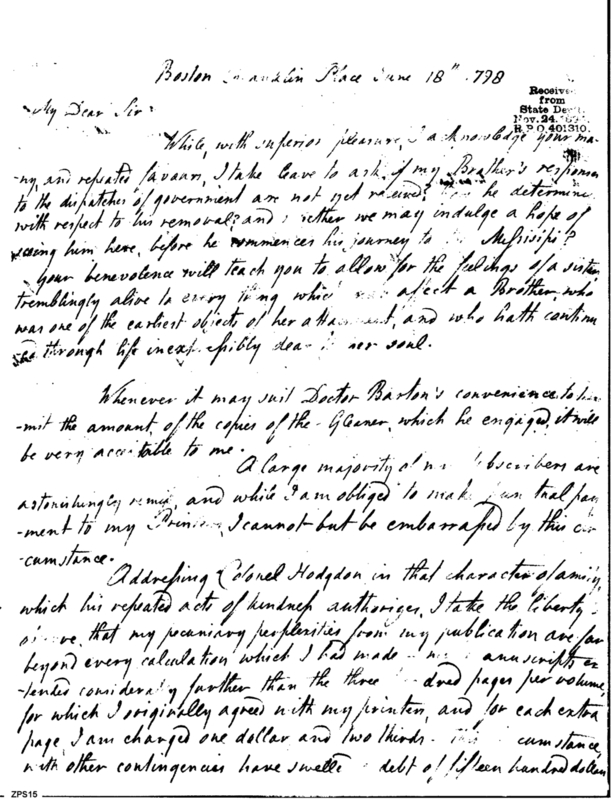 Boston Franklin Place June 18th 1798
Receive
from
State De
Nov. 24. 189
R.P.O. 401310.
My Dear Sir
While, with superior pleasure, I acknowledge your ma-
ny, and repeated favours, I take leave to ask if my Brother's responses
to the dispatches of government are not yet received? he determine
with respect to his removal? and whether we may indulge a hope of
seeing him here, before he commences his journey to Missisipi?
Your benevolence will teach you to allow for the feelings of a sister
tremblingly alive to every thing which affect a Brother, who
was one of the earliest objects of her attachment, and who hath continu
-ed through life inexpressibly dear to her soul.
Whenever it may suit Doctor Barton's convenience to
-mit the amount, of the copies of the Gleaner, which he engaged, it will
be very acceptable to me.
A large majority of my subscribers are
astonishingly remiss, and while I am obliged to make pay
-ment to my Printers, I cannot but be embarrassed by this cir
-cumstance.
Addressing Colonel Hodgdon in that character of amity,
which his repeated acts of kindness authorizes, I take the liberty
observe, that my pecuniary perplexities from my publication are far
beyond every calculation which I had made manuscripts ex
-tended considerably further than the three hundred pages per volume,
for which I originally agreed with my printer, and for each extra
page, I am charged one dollar and two thirds cumstance,
with other contingencies have swelled debt of fifteen hundred dollars
ZPS15